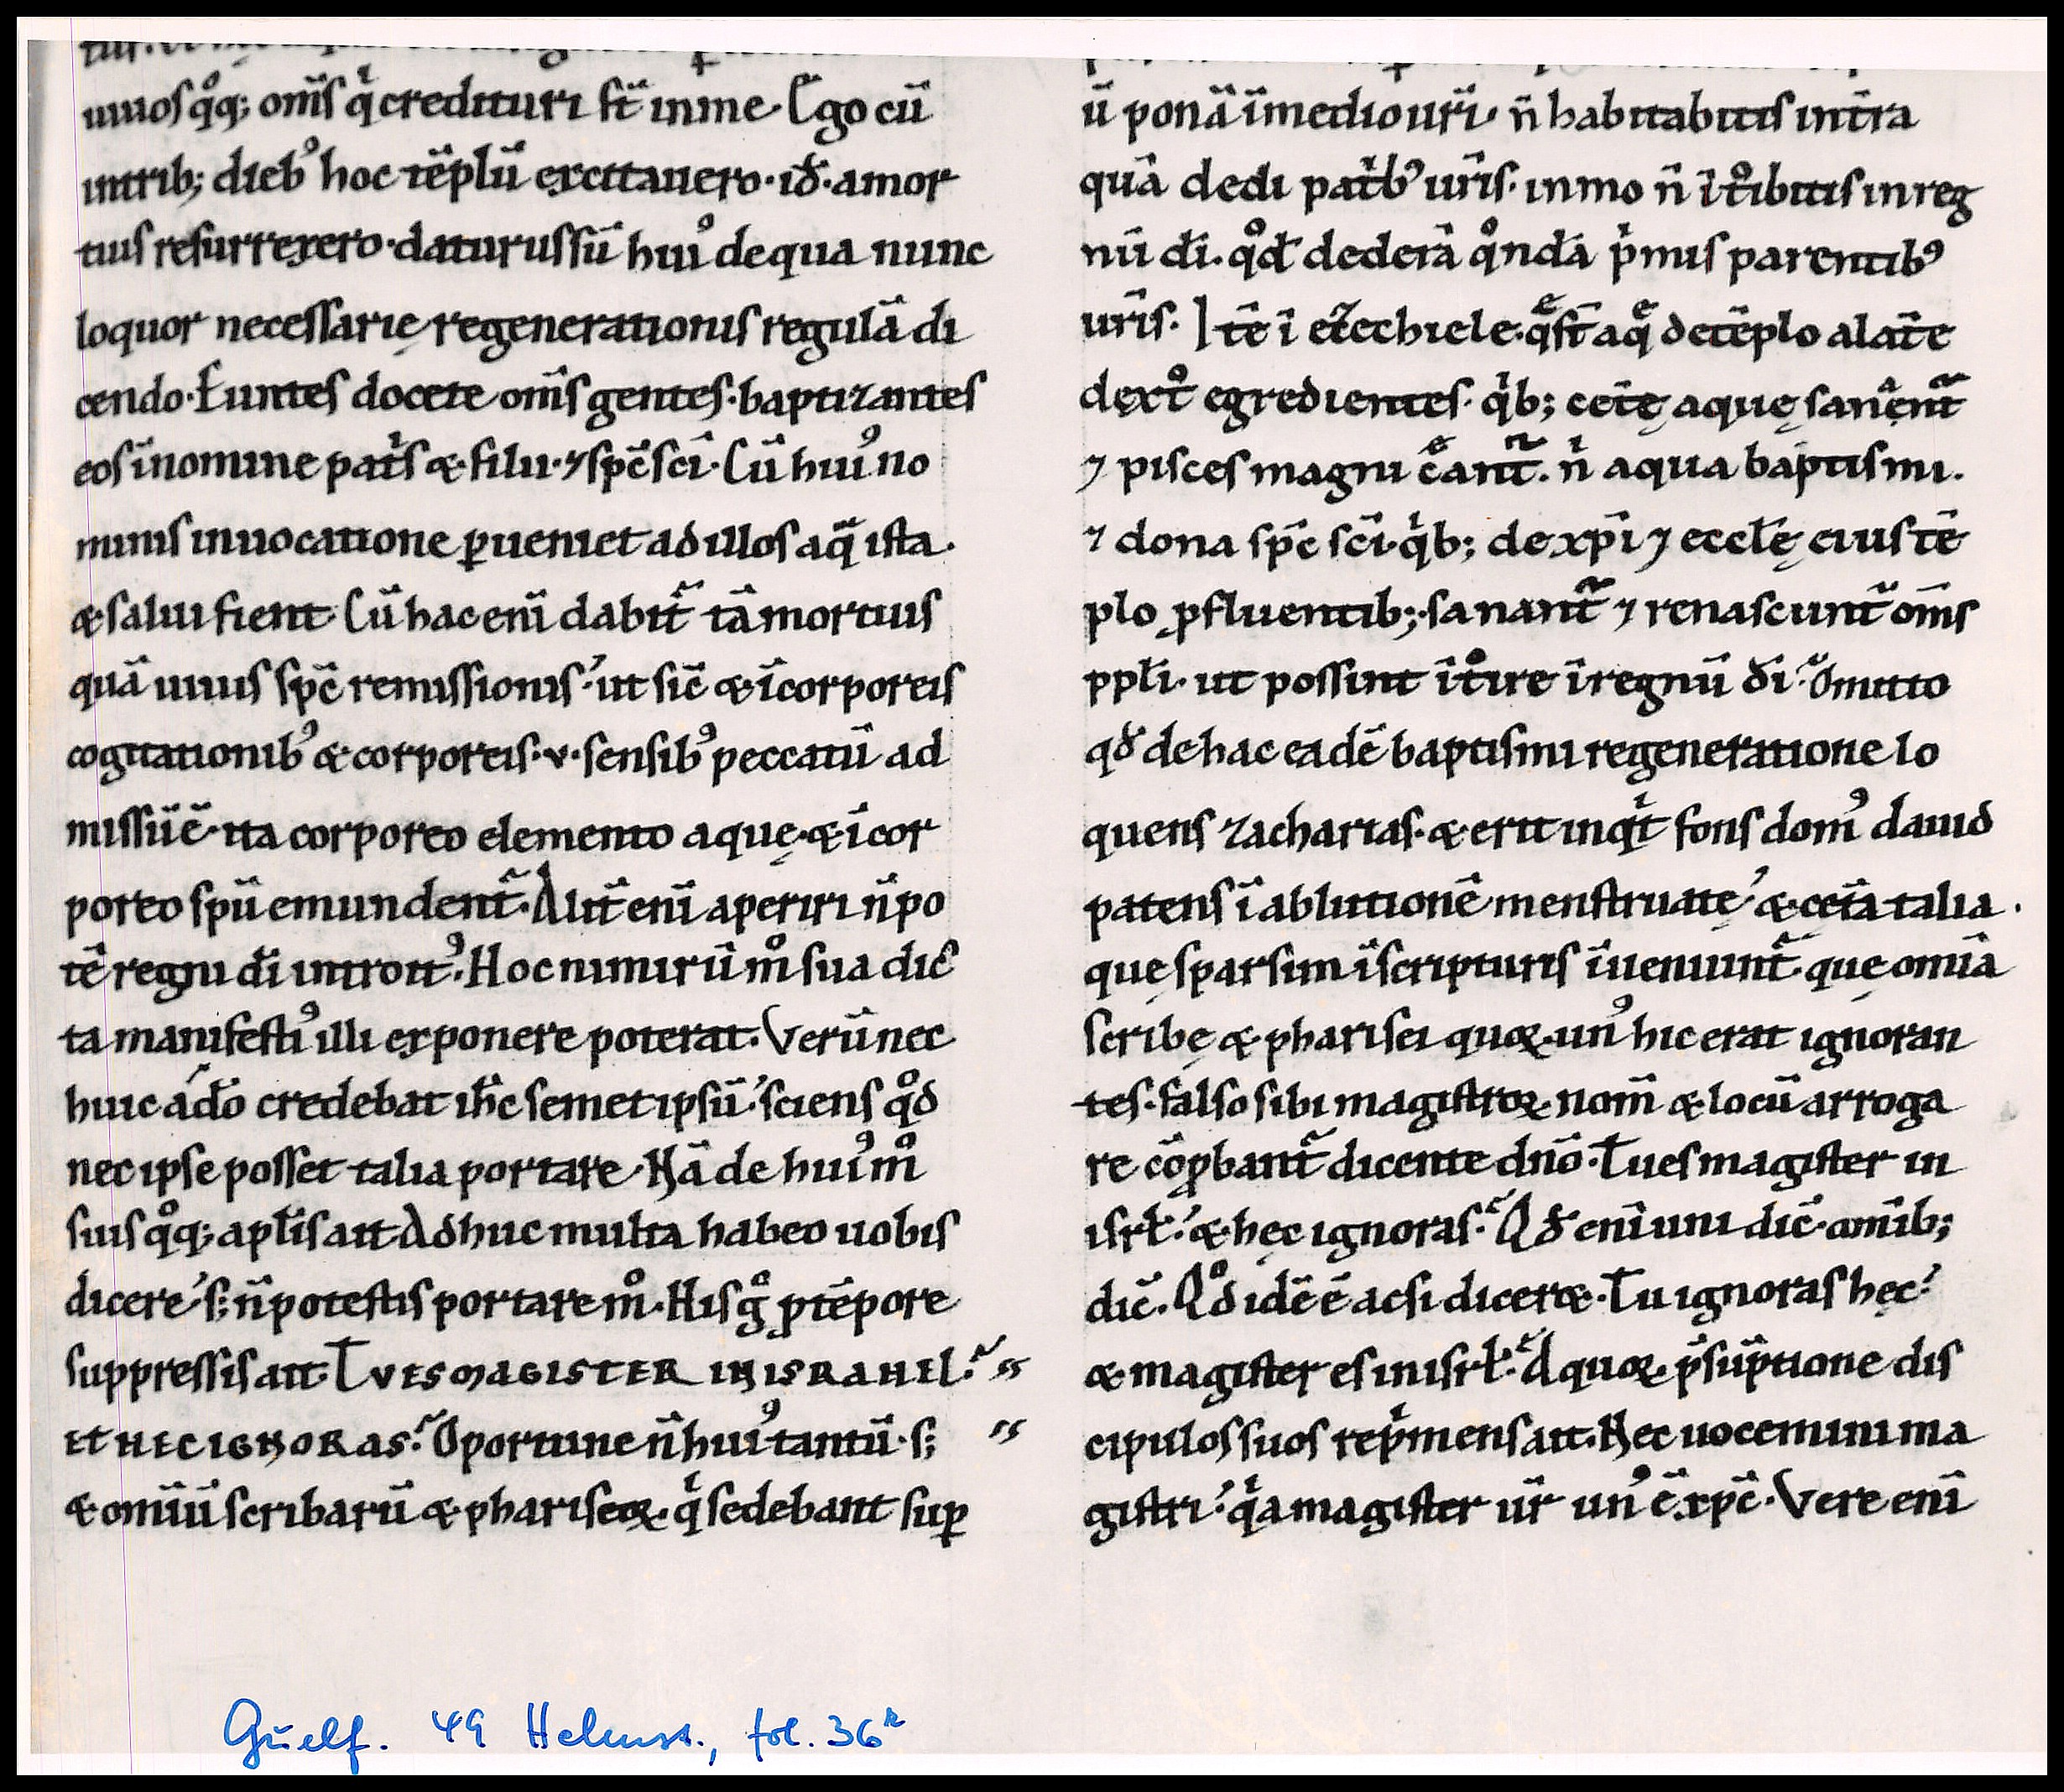 uiuos q̊q; om̄s qͥ credituri st̄ inme. Ego cū
intrib; dieb᾽ hoc tēplū excitauero. id̄. amor
tuis resurrexero. daturus sū hui᾽ de qua nunc
loquor necessarię regenerationis regulā di
cendo. Euntes docete om̄s gentes. baptizantes
eos īnomine patͥs & filii. ⁊ sp̄c sc̄i. Cū hui᾽ no
minis inuocatione ꝑueniet ad illos aq̄ ista.
& salui fient. Cū hac eni dabit̄ tā mortuis
quā uiuis sp̄c remissionis. ut sic̄ & ī corporeis
cogitationib᾽ & corporeis .v. sensib᾽ peccatū ad
missū ē. ita corporeo elemento aquę. & ī cor
poreo spū emundent̄. Alit̄ eni aperiri n̄ po
tē regni di introit᾽. Hoc nimirū m̊ sua dic̄
ta manifesti᾽ illi exponere poterat. Verū nec
huic adō credebat ih̄c semetipsū. sciens q̊d
nec ipse posset talia portare. Nā de hui᾽ m̊
suis q̊q; apl̄is ait. Adhuc multa habeo uobis
dicere. s; n̄ potestis portare m̊. His g̊ ꝑ tēpore
suppressis ait. Tu ES MAGISTER IN ISRAHEL. "
ET HEC IGNORAS. Oportune n̄ hui᾽ tantū. s; "
& omīū scribarū & phariseoꝝ. qͥ sedebant suꝑ
ū ponā ī medio uri. n̄ habitabitis int̄ra
quā dedi patͥb᾽ uris. inmo n̄ ītͦibitis in reg
nū di. q̊d dederā q̊ndā pͥmis parentib᾽
uris. Itē ī ezechiele. q̄ st̄ aq̄ de tēplo a lat̄e
dext̊ egredientes. qͥb; cetę aquę sanēnt̄
⁊ pisces magni c̄ant̄. nͥ aqua baptismi.
⁊ dona sp̄c sc̄i. qͥb; de xp̄i ⁊ eccl̄ę eius tē
plo ꝓfluentib;. sanant̄ ⁊ renascunt̄ om̄s
ppl̄i. ut possint ītͦire ī regnū di. Omitto
qd̄ de hac eadē baptismi regeneratione lo
quens zacharias. & erit inqͥt fons dom᾽ dauid
patens ī ablutionē menstruatę. & cet̄a talia.
quę sparsim ī scripturis īueniunt̄. quę omīa
scribę & pharisei quoꝝ. un᾽ hic erat ignoran
tes. falso sibi magistroꝝ. nom̄ & locū arroga
re cōꝓbant̄ dicente dn̄o. Tu es magister in
isrl̄. & hęc ignoras. Qd̄ eni uni dic̄. omīb;
dic̄. Q̊d idē ē acsi diceret. Tu ignoras hęc.
& magister es in isrl̄. A quoꝝ. p̄sūptione dis
cipulos suos repͥmens ait. Nec uocemini ma
gistri. qͥa magister ur̄ un᾽ ē xp̄c. Vere eni
Guelf. 49 Helmst., fol. 36r